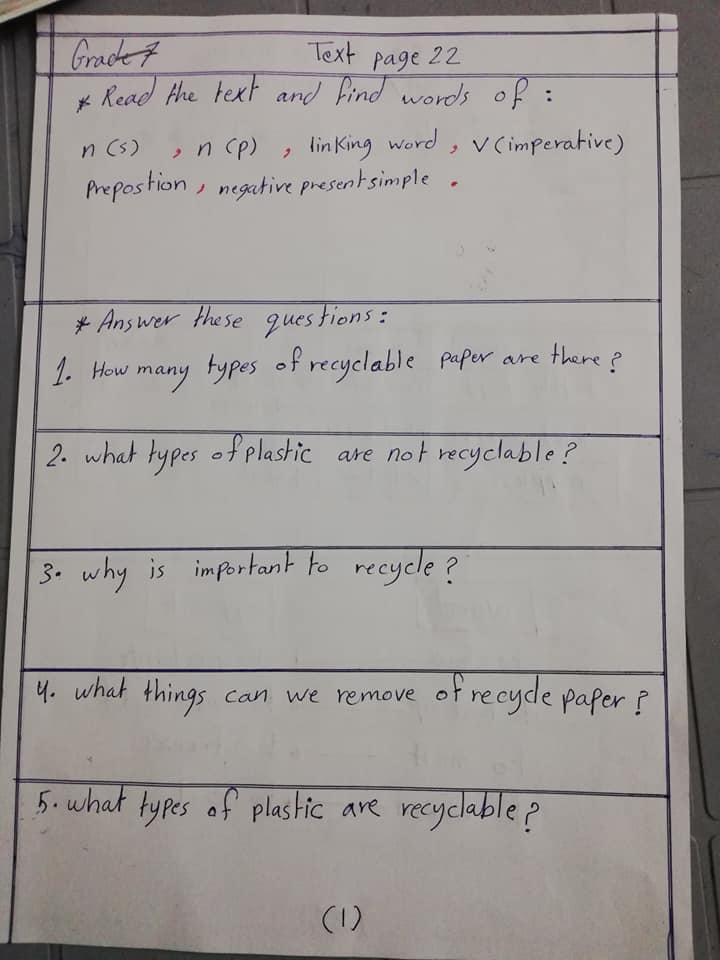 Grade 7 Text page 22
* Read the text and find words of :
n (s) , n (p) , linking word , V (imperative)
Prepostion , negative present simple .
* Answer these questions :
1. How many types of recyclable paper are there ?
2. what types of plastic are not recyclable ?
3. why is important to recycle ?
4. what things can we remove of recycle paper ?
5. what types of plastic are recyclable ?
(1)